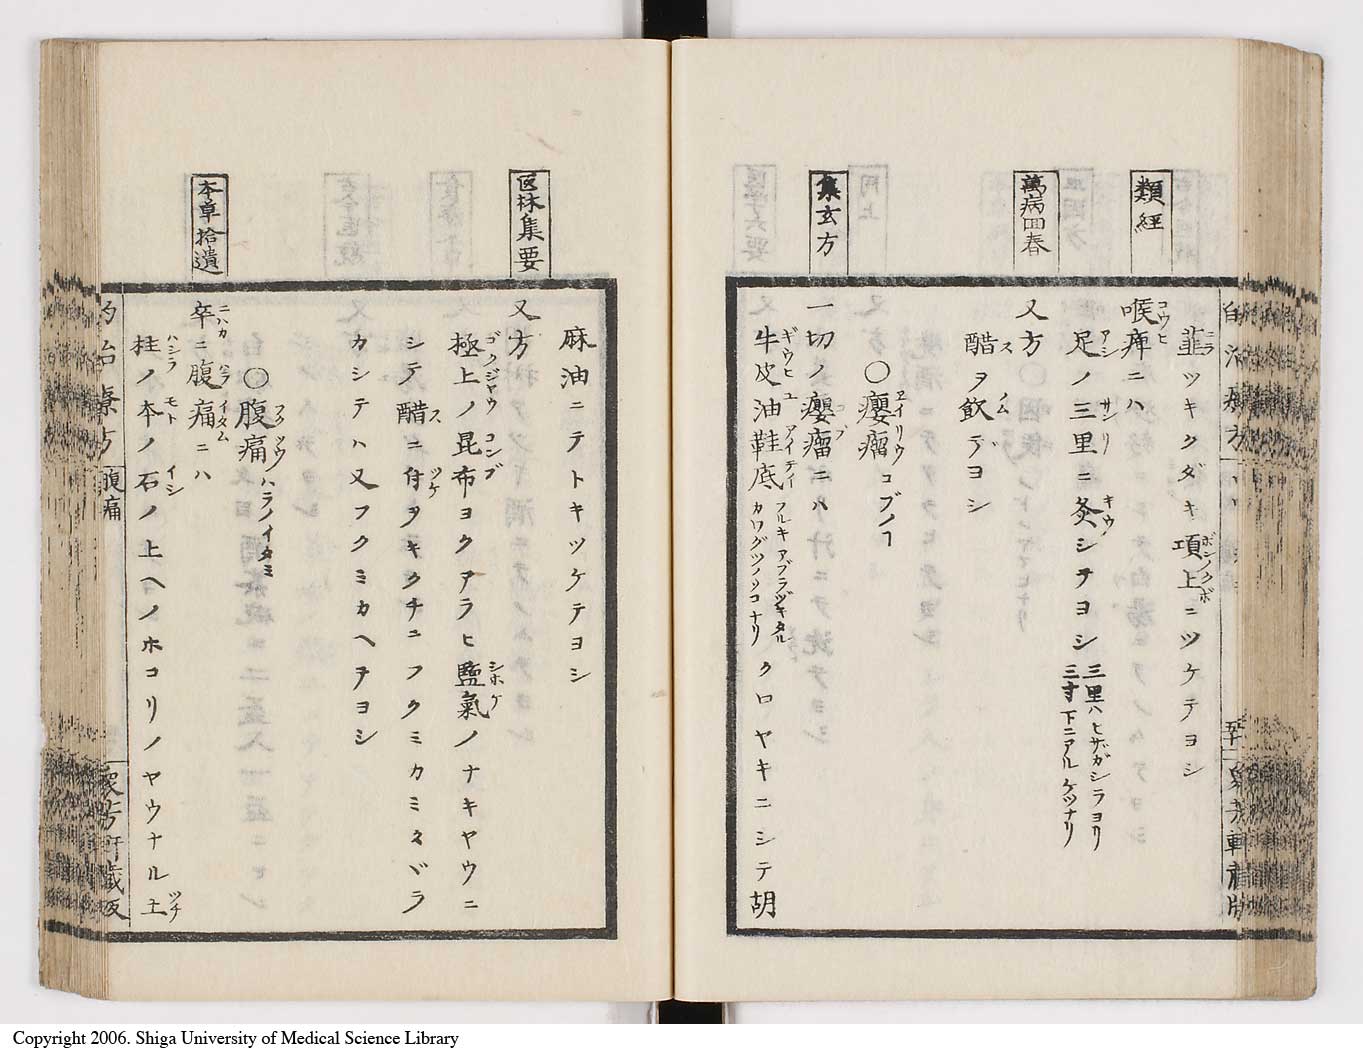 韮ツキクダキ項上ニツケテヨシ
類経
喉痺ニハ
足ノ三里ニ灸シテヨシ三里ハヒザガシラヨリ
三寸下ニアルケツナリ
萬病回春
又方
醋ヲ飲デヨシ
〇癭瘤コブノヿ
集玄方
一切ノ癭瘤ニハ
牛皮油鞋底フルキアブラヅキタル
カワグツノソコナリ
クロヤキニシテ胡
麻油ニテトキツケテヨシ
医林集要
又方
極上ノ昆布ヨクアラヒ鹽氣ノナキヤウニ
シテ醋ニ付ヲキクチニフクミカミネバラ
カシテハ又フクミカヘテヨシ
〇腹痛ハラノイタミ
本草拾遺
卒ニ腹痛ニハ
柱ノ本ノ石ノ上ヘノホコリノヤウナル土
腹痛
Copyright 2006. Shiga University of Medical Science Library